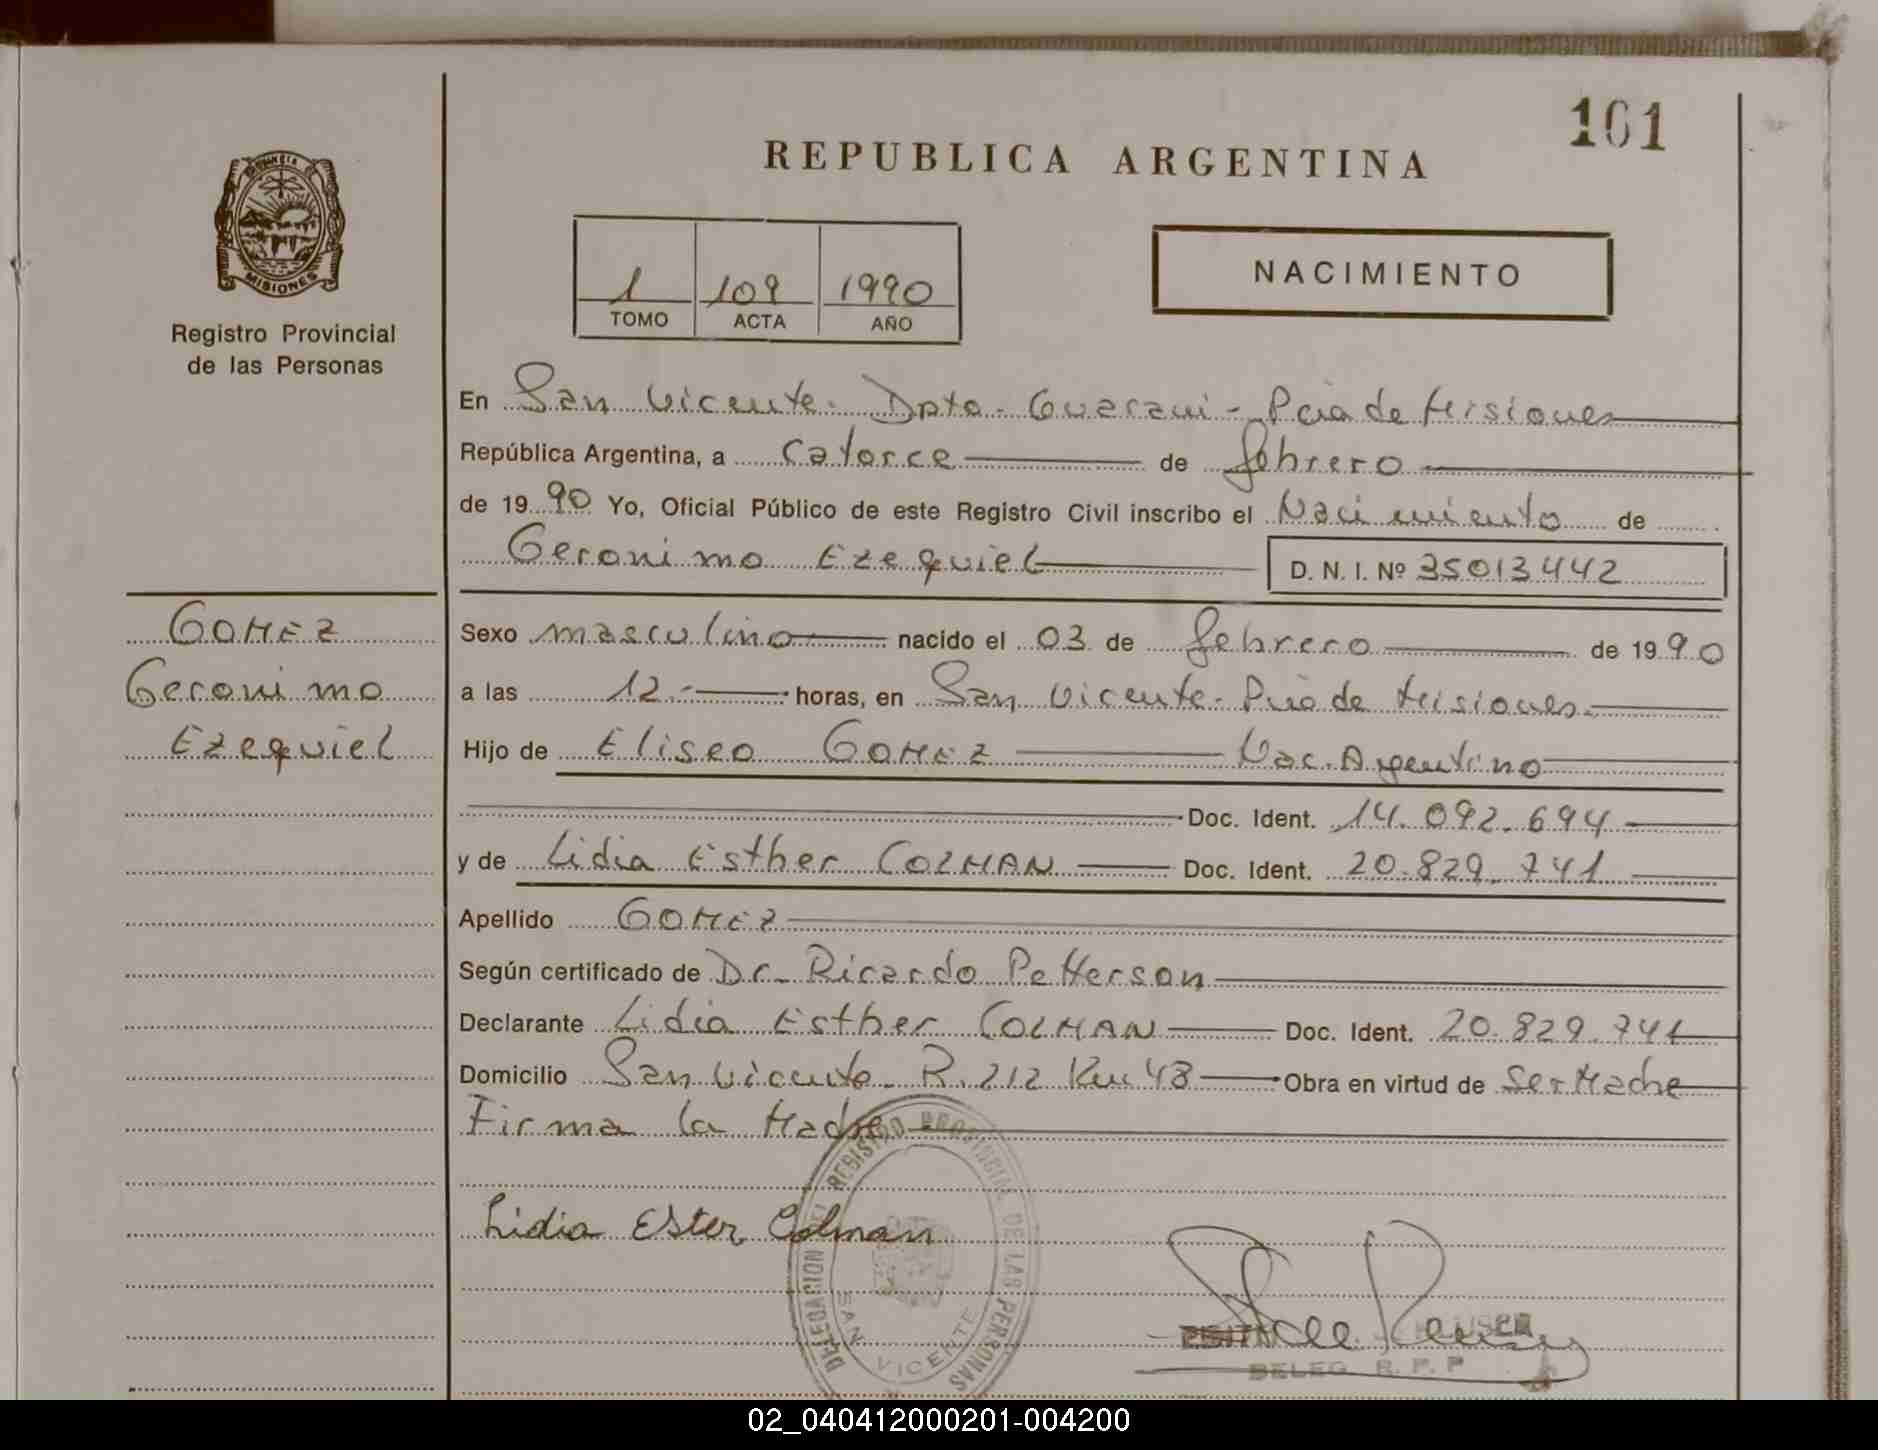 101
REPUBLICA ARGENTINA
PROVINCIA
MISIONES
Registro Provincial
de las Personas
1 109 1990
TOMO ACTA AÑO
NACIMIENTO
En San Vicente. Dpto. Guarani - Pcia de Misiones
República Argentina, a catorce de febrero
de 1990 Yo, Oficial Público de este Registro Civil inscribo el Nacimiento de
Geronimo Ezequiel D. N. I. Nº 35013442
GOMEZ
Geronimo
Ezequiel
Sexo masculino nacido el 03 de febrero de 1990
a las 12.- horas, en San Vicente - Pcia de Misiones.
Hijo de Eliseo GOMEZ Nac. Argentino
Doc. Ident. 14.092.694
y de Lidia Esther COLMAN Doc. Ident. 20.829.741
Apellido GOMEZ
Según certificado de Dr. Ricardo Petterson
Declarante Lidia Esther COLMAN Doc. Ident. 20.829.741
Domicilio San Vicente - R. 212 Km 43 Obra en virtud de Ser Madre
Firma la Madre
Lidia Ester Colman
DELEGACION DEL REGISTRO PROVINCIAL DE LAS PERSONAS
SAN VICENTE
DELEG R. P. P
02_040412000201-004200